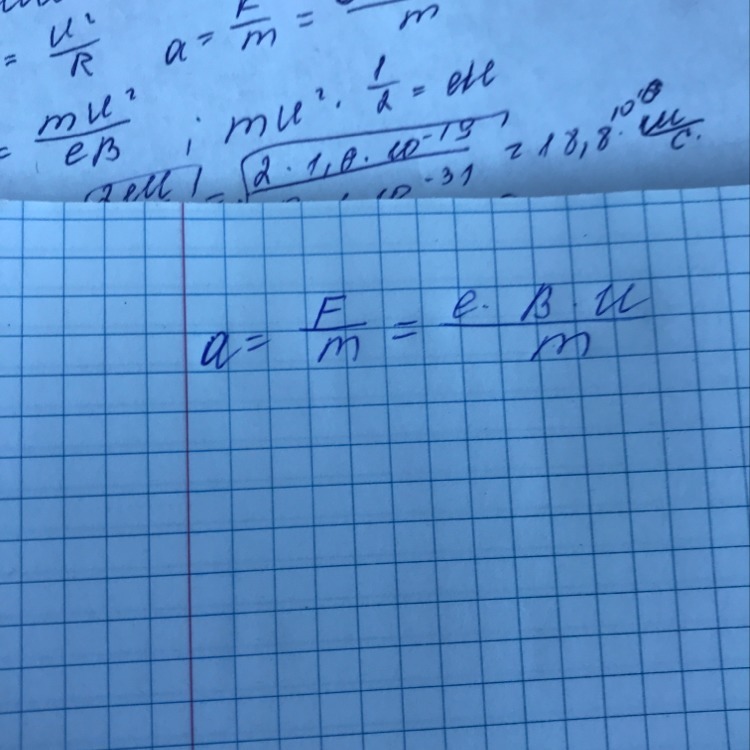 = u²/R a = F/m = /m
= mu²/eB ; mu² · 1/2 = eU
= √(2 · 1,6 · 10⁻¹⁹ / 10⁻³¹) = 18,8 · 10⁶ м/с.
a = F/m = e · B · u/m